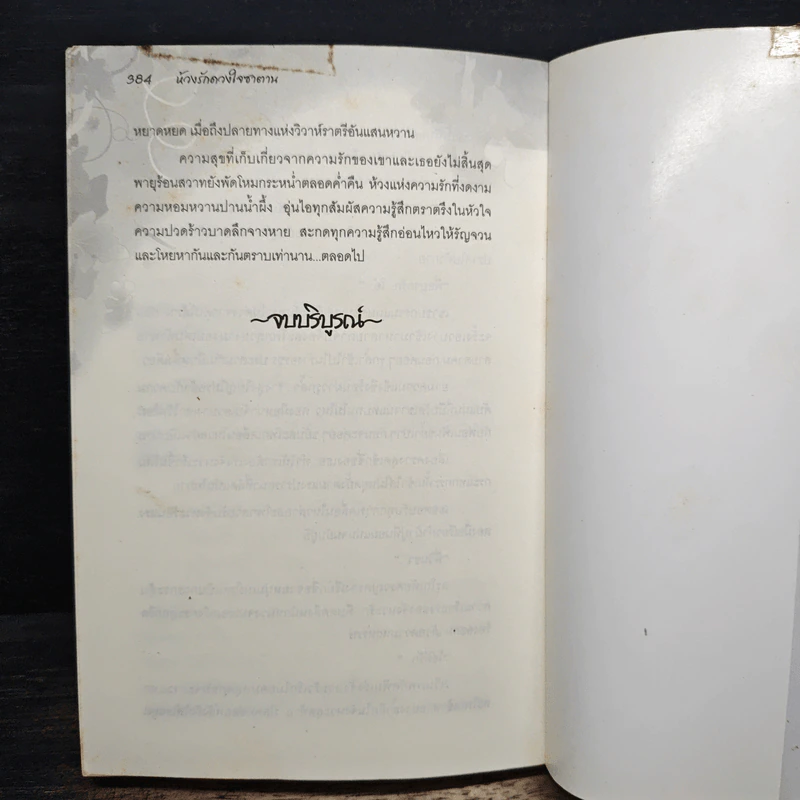 384 ห้วงรักดวงใจซาตาน
หยาดหยด เมื่อถึงปลายทางแห่งวิวาห์ราตรีอันแสนหวาน
ความสุขที่เก็บเกี่ยวจากความรักของเขาและเธอยังไม่สิ้นสุด
พายุร้อนสวาทยังพัดโหมกระหน่ำตลอดค่ำคืน ห้วงแห่งความรักที่งดงาม
ความหอมหวานปานน้ำผึ้ง อุ่นไอทุกสัมผัสความรู้สึกตราตรึงในหัวใจ
ความปวดร้าวบาดลึกจางหาย สะกดทุกความรู้สึกอ่อนไหวให้รัญจวน
และโหยหากันและกันตราบเท่านาน...ตลอดไป
~จบบริบูรณ์~